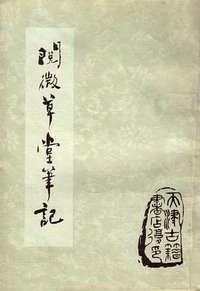 閱微草堂筆記
天津古籍
書店復印